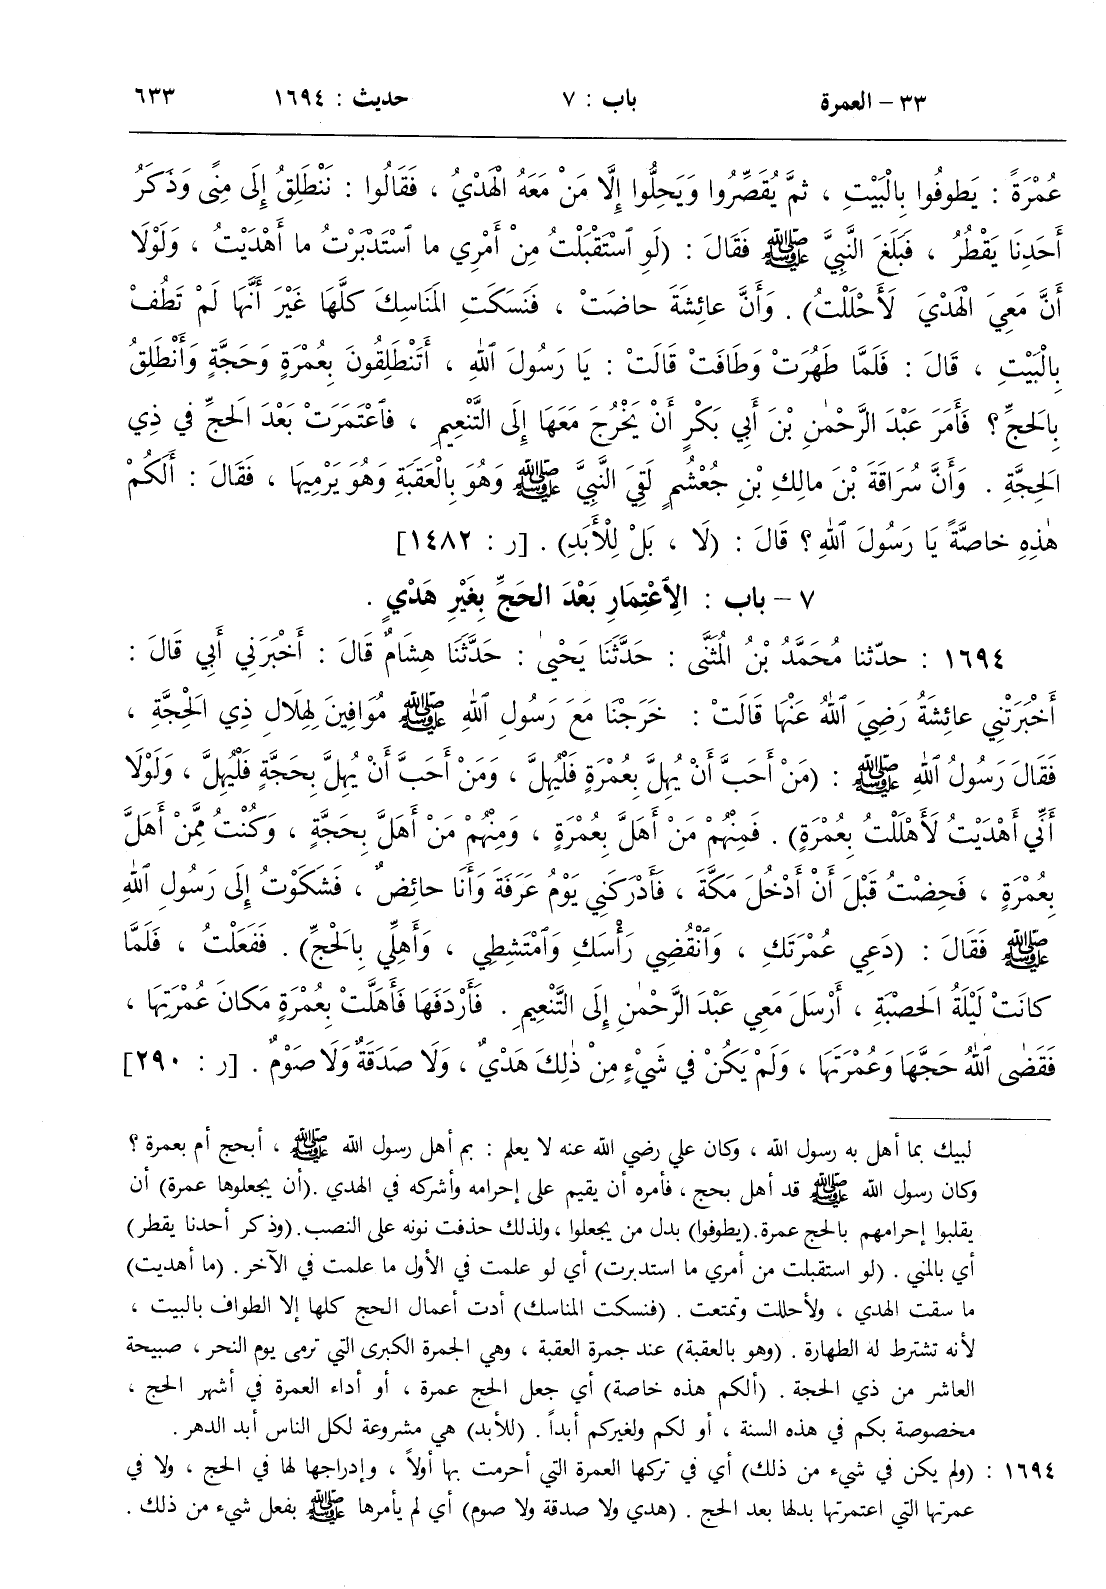 ٣٣ - العمرة باب : ٧ حديث : ١٦٩٤ ٦٣٣
عُمْرَةً : يَطوفُوا بِالْبَيْتِ ، ثمَّ يُقَصِّرُوا وَيَحِلُّوا إِلَّا مَنْ مَعَهُ الْهَدْيُ ، فَقَالُوا : نَنْطَلِقُ إِلَى مِنًى وَذَكَرُ
أَحَدِنَا يَقْطُرُ ، فَبَلَغَ النَّبِيَّ ﷺ فَقَالَ : (لَوِ ٱسْتَقْبَلْتُ مِنْ أَمْرِي ما ٱسْتَدْبَرْتُ ما أَهْدَيْتُ ، وَلَوْلَا
أَنَّ مَعِيَ الْهَدْيَ لَأَحْلَلْتُ) . وَأَنَّ عائِشَةَ حاضَتْ ، فَنَسَكَتِ المَنَاسِكَ كلَّهَا غَيْرَ أَنَّهَا لَمْ تَطُفْ
بِالْبَيْتِ ، قَالَ : فَلَمَّا طَهُرَتْ وَطَافَتْ قَالَتْ : يَا رَسُولَ ٱللهِ ، أَتَنْطَلِقُونَ بِعُمْرَةٍ وَحَجَّةٍ وَأَنْطَلِقُ
بِالحَجِّ ؟ فَأَمَرَ عَبْدَ الرَّحْمٰنِ بْنَ أَبِي بَكْرٍ أَنْ يَخْرُجَ مَعَهَا إِلَى التَّنْعِيمِ ، فَاعْتَمَرَتْ بَعْدَ الحَجِّ في ذِي
الحِجَّةِ . وَأَنَّ سُرَاقَةَ بْنَ مالِكِ بْنِ جُعْشُمٍ لَقِيَ النَّبِيَّ ﷺ وَهُوَ بِالْعَقَبَةِ وَهُوَ يَرْمِيهَا ، فَقَالَ : أَلَكُمْ
هٰذِهِ خاصَّةً يَا رَسُولَ ٱللهِ ؟ قَالَ : (لَا ، بَلْ لِلْأَبَدِ) . [ر : ١٤٨٢]
٧ - باب : الِاعْتِمَارِ بَعْدَ الحَجِّ بِغَيْرِ هَدْيٍ .
١٦٩٤ : حدّثنا مُحَمَّدُ بْنُ المُثَنَّى : حَدَّثَنَا يَحْيىٰ : حَدَّثَنَا هِشَامٌ قَالَ : أَخْبَرَنِي أَبِي قَالَ :
أَخْبَرَتْنِي عائِشَةُ رَضِيَ ٱللهُ عَنْهَا قَالَتْ : خَرَجْنَا مَعَ رَسُولِ ٱللهِ ﷺ مُوَافِينَ لِهِلَالِ ذِي الْحِجَّةِ ،
فَقَالَ رَسُولُ ٱللهِ ﷺ : (مَنْ أَحَبَّ أَنْ يُهِلَّ بِعُمْرَةٍ فَلْيُهِلَّ ، وَمَنْ أَحَبَّ أَنْ يُهِلَّ بِحَجَّةٍ فَلْيُهِلَّ ، وَلَوْلَا
أَنِّي أَهْدَيْتُ لَأَهْلَلْتُ بِعُمْرَةٍ) . فَمِنْهُمْ مَنْ أَهَلَّ بِعُمْرَةٍ ، وَمِنْهُمْ مَنْ أَهَلَّ بِحَجَّةٍ ، وَكُنْتُ مِمَّنْ أَهَلَّ
بِعُمْرَةٍ ، فَحِضْتُ قَبْلَ أَنْ أَدْخُلَ مَكَّةَ ، فَأَدْرَكَنِي يَوْمُ عَرَفَةَ وَأَنَا حائِضٌ ، فَشَكَوْتُ إِلَى رَسُولِ ٱللهِ
ﷺ فَقَالَ : (دَعِي عُمْرَتَكِ ، وَٱنْقُضِي رَأْسَكِ وَٱمْتَشِطِي ، وَأَهِلِّي بِالْحَجِّ) . فَفَعَلْتُ ، فَلَمَّا
كانَتْ لَيْلَةُ الحَصْبَةِ ، أَرْسَلَ مَعِي عَبْدَ الرَّحْمٰنِ إِلَى التَّنْعِيمِ . فَأَرْدَفَهَا فَأَهَلَّتْ بِعُمْرَةٍ مَكانَ عُمْرَتِهَا ،
فَقَضٰى ٱللهُ حَجَّهَا وَعُمْرَتَهَا ، وَلَمْ يَكُنْ في شَيْءٍ مِنْ ذٰلِكَ هَدْيٌ ، وَلَا صَدَقَةٌ وَلَا صَوْمٌ . [ر : ٢٩٠]
لبيك بما أهل به رسول الله ، وكان علي رضي الله عنه لا يعلم : بم أهل رسول الله ﷺ ، أبحج أم بعمرة ؟
وكان رسول الله ﷺ قد أهل بحج ، فأمره أن يقيم على إحرامه وأشركه في الهدي .(أن يجعلوها عمرة) أن
يقلبوا إحرامهم بالحج عمرة.(يطوفوا) بدل من يجعلوا ، ولذلك حذفت نونه على النصب.(وذكر أحدنا يقطر)
أي بالمني . (لو استقبلت من أمري ما استدبرت) أي لو علمت في الأول ما علمت في الآخر . (ما أهديت)
ما سقت الهدي ، ولأحللت وتمتعت . (فنسكت المناسك) أدت أعمال الحج كلها إلا الطواف بالبيت ،
لأنه تشترط له الطهارة . (وهو بالعقبة) عند جمرة العقبة ، وهي الجمرة الكبرى التي ترمى يوم النحر ، صبيحة
العاشر من ذي الحجة . (ألكم هذه خاصة) أي جعل الحج عمرة ، أو أداء العمرة في أشهر الحج ،
مخصوصة بكم في هذه السنة ، أو لكم ولغيركم أبداً . (للأبد) هي مشروعة لكل الناس أبد الدهر .
١٦٩٤ : (ولم يكن في شيء من ذلك) أي في تركها العمرة التي أحرمت بها أولاً ، وإدراجها لها في الحج ، ولا في
عمرتها التي اعتمرتها بدلها بعد الحج . (هدي ولا صدقة ولا صوم) أي لم يأمرها ﷺ بفعل شيء من ذلك .